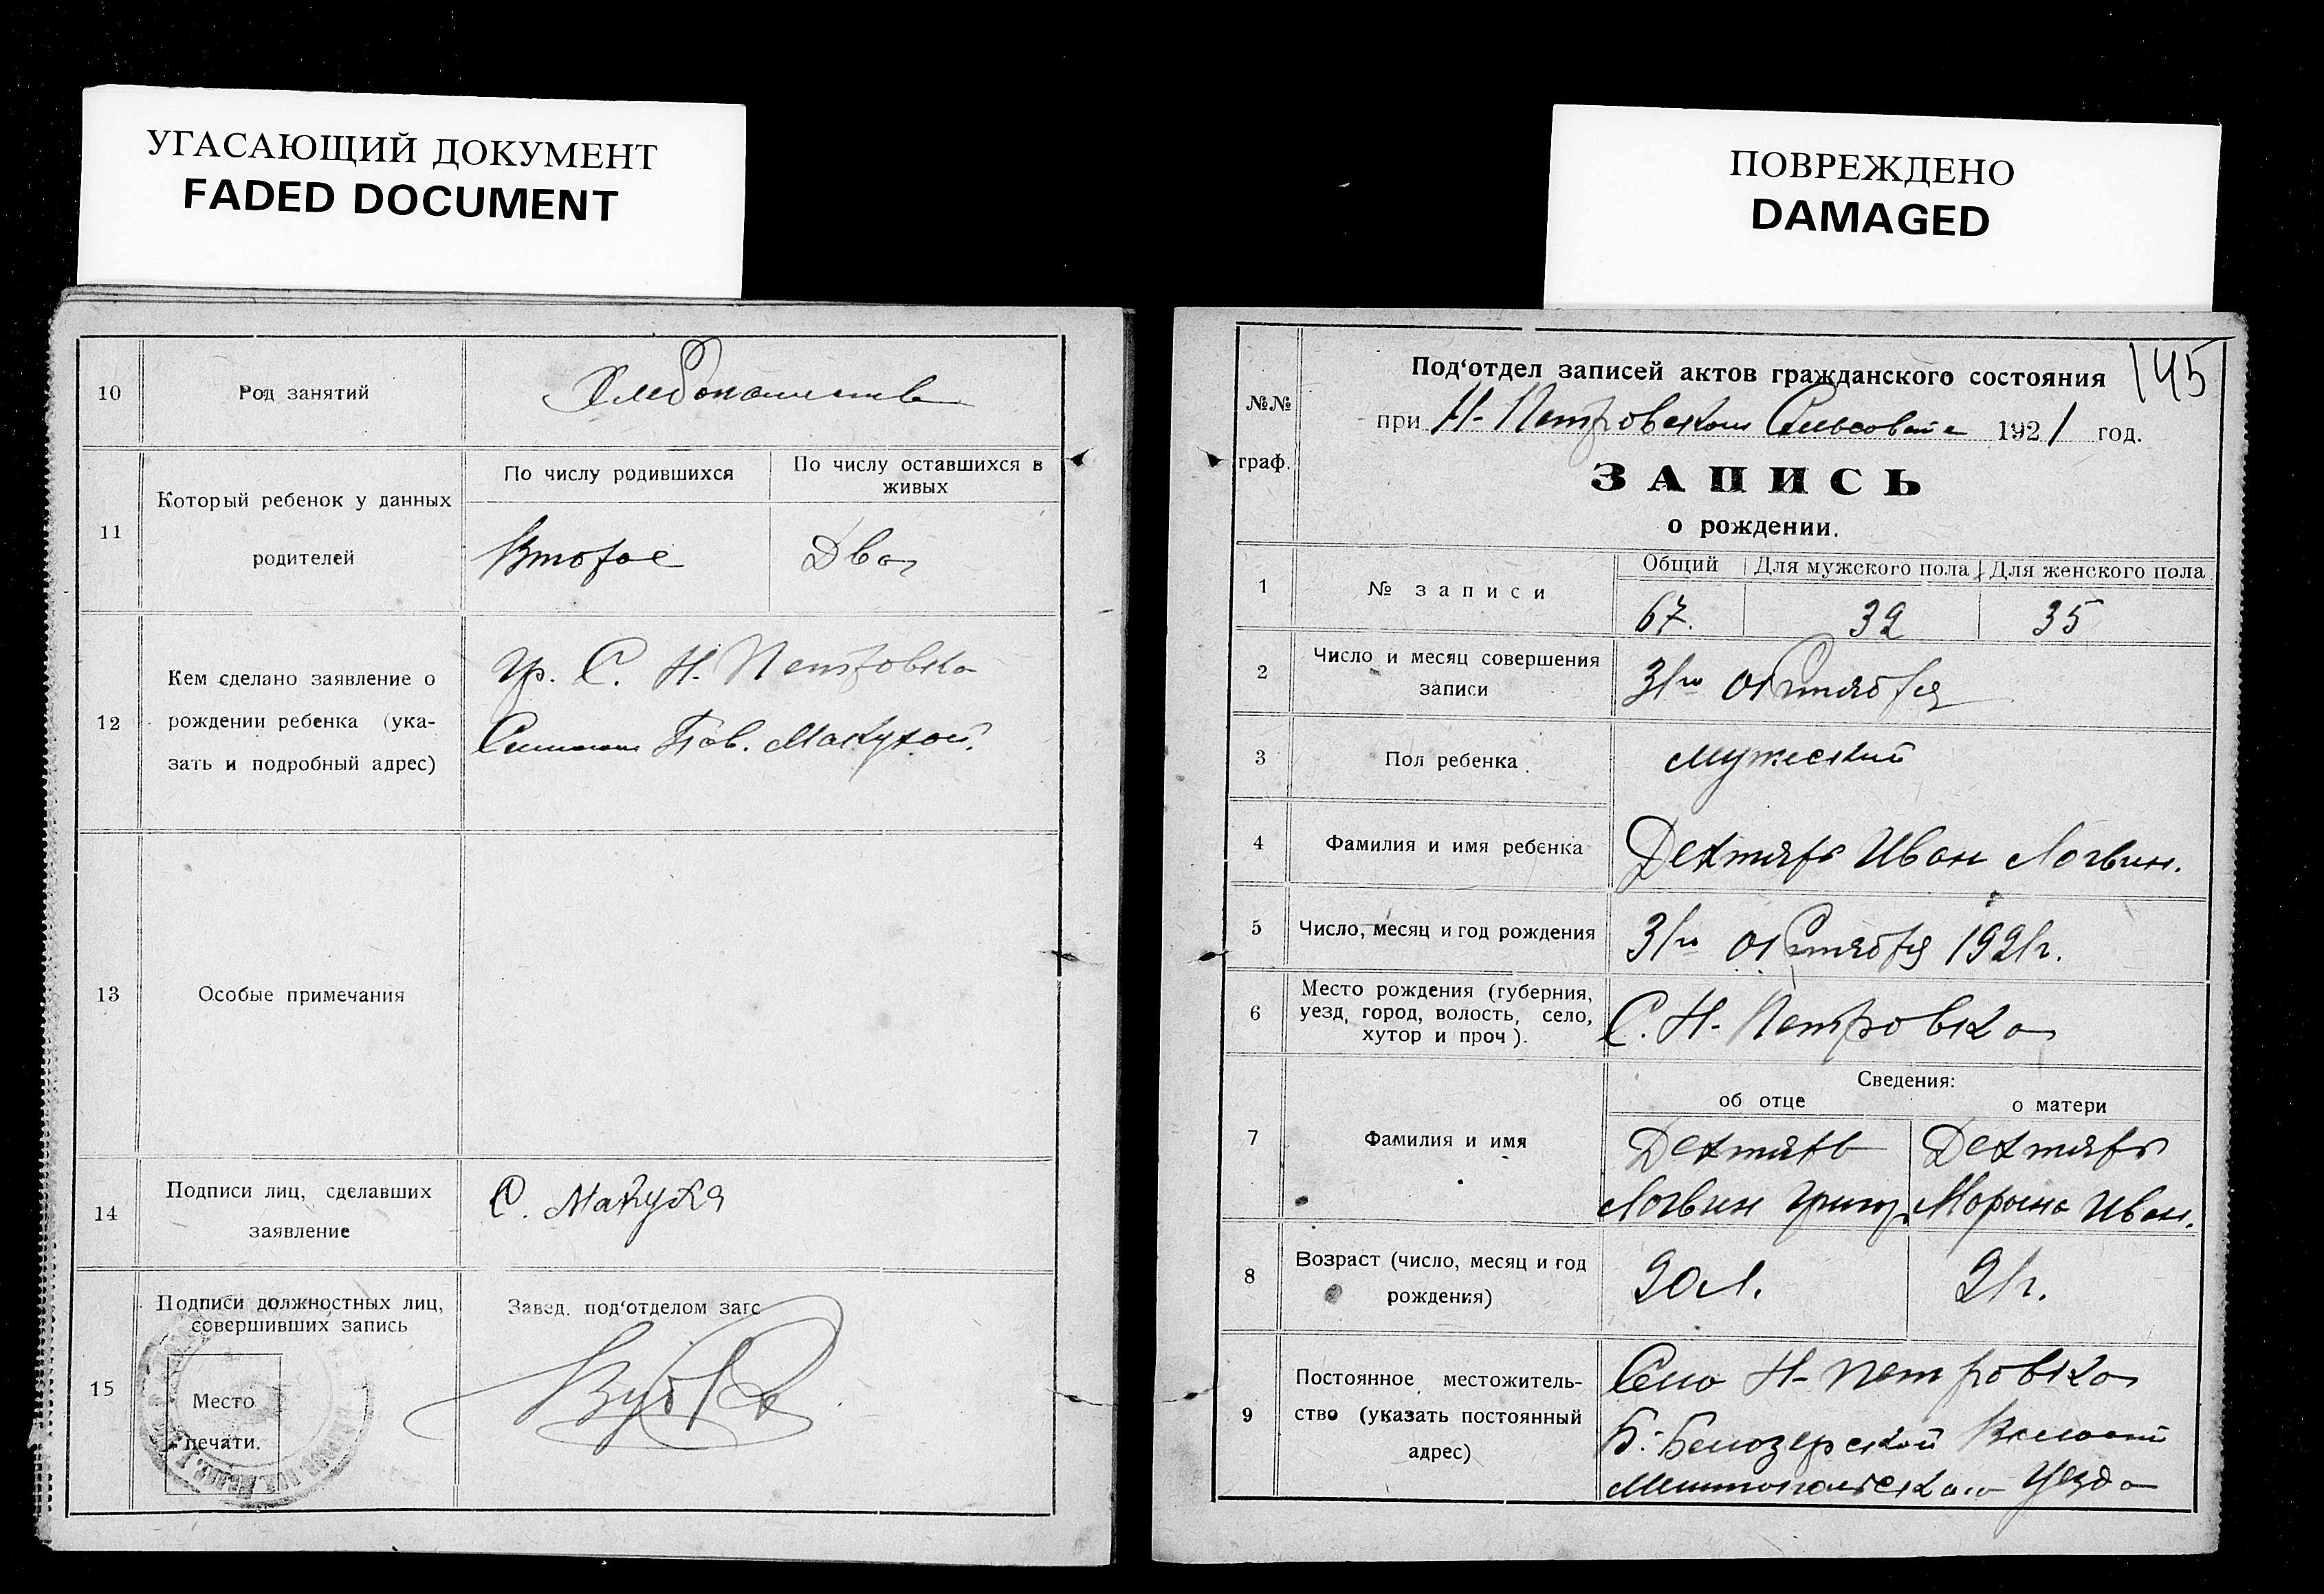 УГАСАЮЩИЙ ДОКУМЕНТ
FADED DOCUMENT
ПОВРЕЖДЕНО
DAMAGED
10
Род занятий
Хлебопашество
11
Который ребенок у данных
родителей
По числу родившихся
По числу оставшихся в
живых
Второе
Два
12
Кем сделано заявление о
рождении ребенка (ука-
зать и подробный адрес)
Гр. С. Н. Петровка
Пав. Макухой.
13
Особые примечания
14
Подписи лиц, сделавших
заявление
С. Макуха
15
Подписи должностных лиц,
совершивших запись
Место
печати.
Завед. под‘отделом загс
145
№№
граф.
Под‘отдел записей актов гражданского состояния
при Н-Петровском Сельсовете 1921 год.
ЗАПИСЬ
о рождении.
1
№ записи
Общий Для мужского пола Для женского пола
67. 32 35
2
Число и месяц совершения
записи
31го октября
3
Пол ребенка
мужеский
4
Фамилия и имя ребенка
Дехтярь Иван Логвин.
5
Число, месяц и год рождения
31го октября 1921г.
6
Место рождения (губерния,
уезд, город, волость, село,
хутор и проч).
С. Н-Петровка
7
Фамилия и имя
Сведения:
об отце
о матери
Дехтярь
Логвин Григор.
Дехтярь
Марына Иван.
8
Возраст (число, месяц и год
рождения)
20л.
21г.
9
Постоянное местожитель-
ство (указать постоянный
адрес)
Село Н-Петровка
Б.-Белозерской Волости
Мелитопольского Уезда